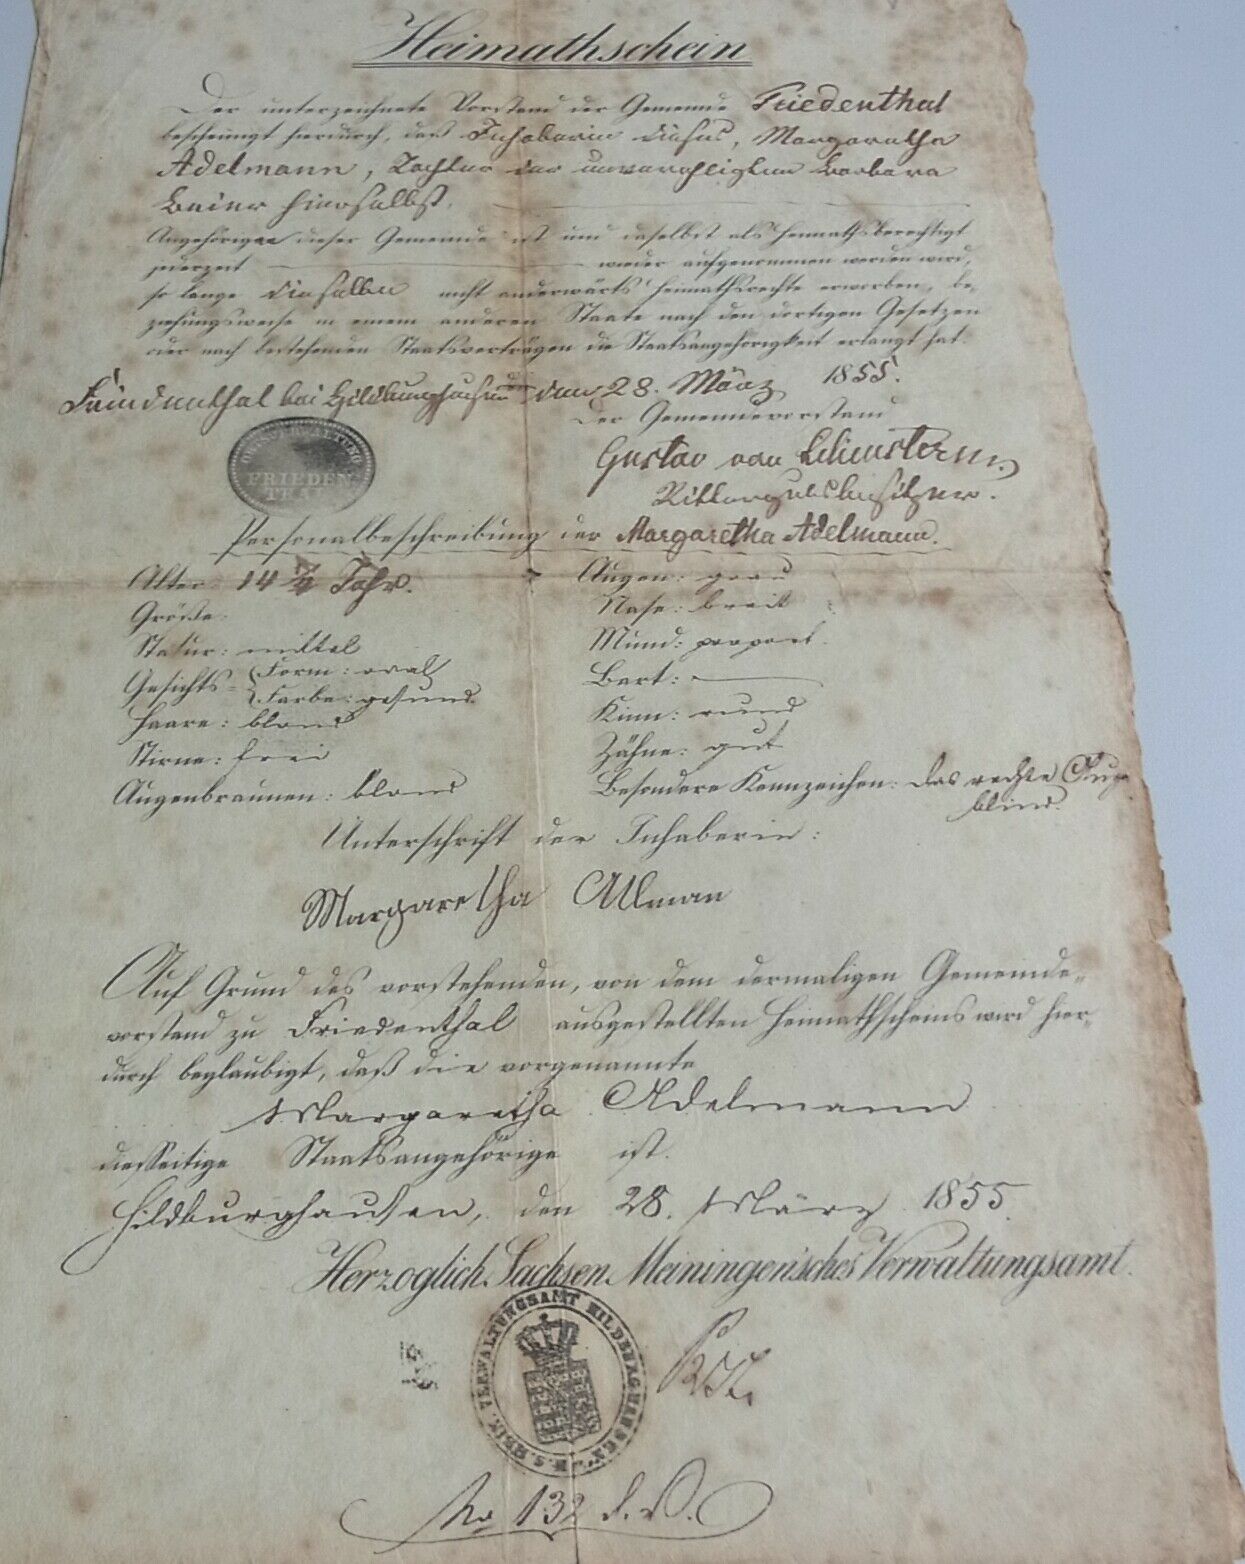 Heimathschein
Der unterzeichnete Vorstand der Gemeinde Friedenthal
bescheinigt hierdurch, daß Inhaberin dieses, Margaretha
Adelmann, Tochter der unverehligten Barbara
Beier hierselbst,
Angehörige dieser Gemeinde ist und daselbst als heimathsberechtigt
jederzeit wieder aufgenommen werden wird,
so lange dieselbe nicht anderwärts Heimathsrechte erworben, be-
ziehungsweise in einem anderen Staate nach den dortigen Gesetzen
oder nach bestehenden Staatsverträgen die Staatsangehörigkeit erlangt hat.
Friedenthal bei Hildburghausen den 28. März 1855.
Der Gemeindevorstand
Gustav von
Rittergutsbesitzer.
ORTSVERWALTUNG
FRIEDEN
THAL
Personalbeschreibung der Margaretha Adelmann.
Alter: 14 Jahr.
Größe:
Statur: mittel
Gesichts- Form: oval
Farbe: gesund
Haare: blond
Stirne: frei
Augenbraunen: blond
Augen: grau
Nase: breit
Mund: proport.
Bart:
Kinn: rund
Zähne: gut
Besondere Kennzeichen: das rechte Auge
blind.
Unterschrift der Inhaberin:
Margaretha
Auf Grund des vorstehenden, von dem dermaligen Gemeinde-
vorstand zu Friedenthal ausgestellten Heimathscheins wird hier-
durch beglaubigt, daß die vorgenannte
Margaretha Adelmann
diesseitige Staatsangehörige ist.
Hildburghausen, den 28. März 1855.
Herzoglich Sachsen Meiningensches Verwaltungsamt.
H. S. MEIN. VERWALTUNGSAMT HILDBURGHAUSEN
No 132 d. V.